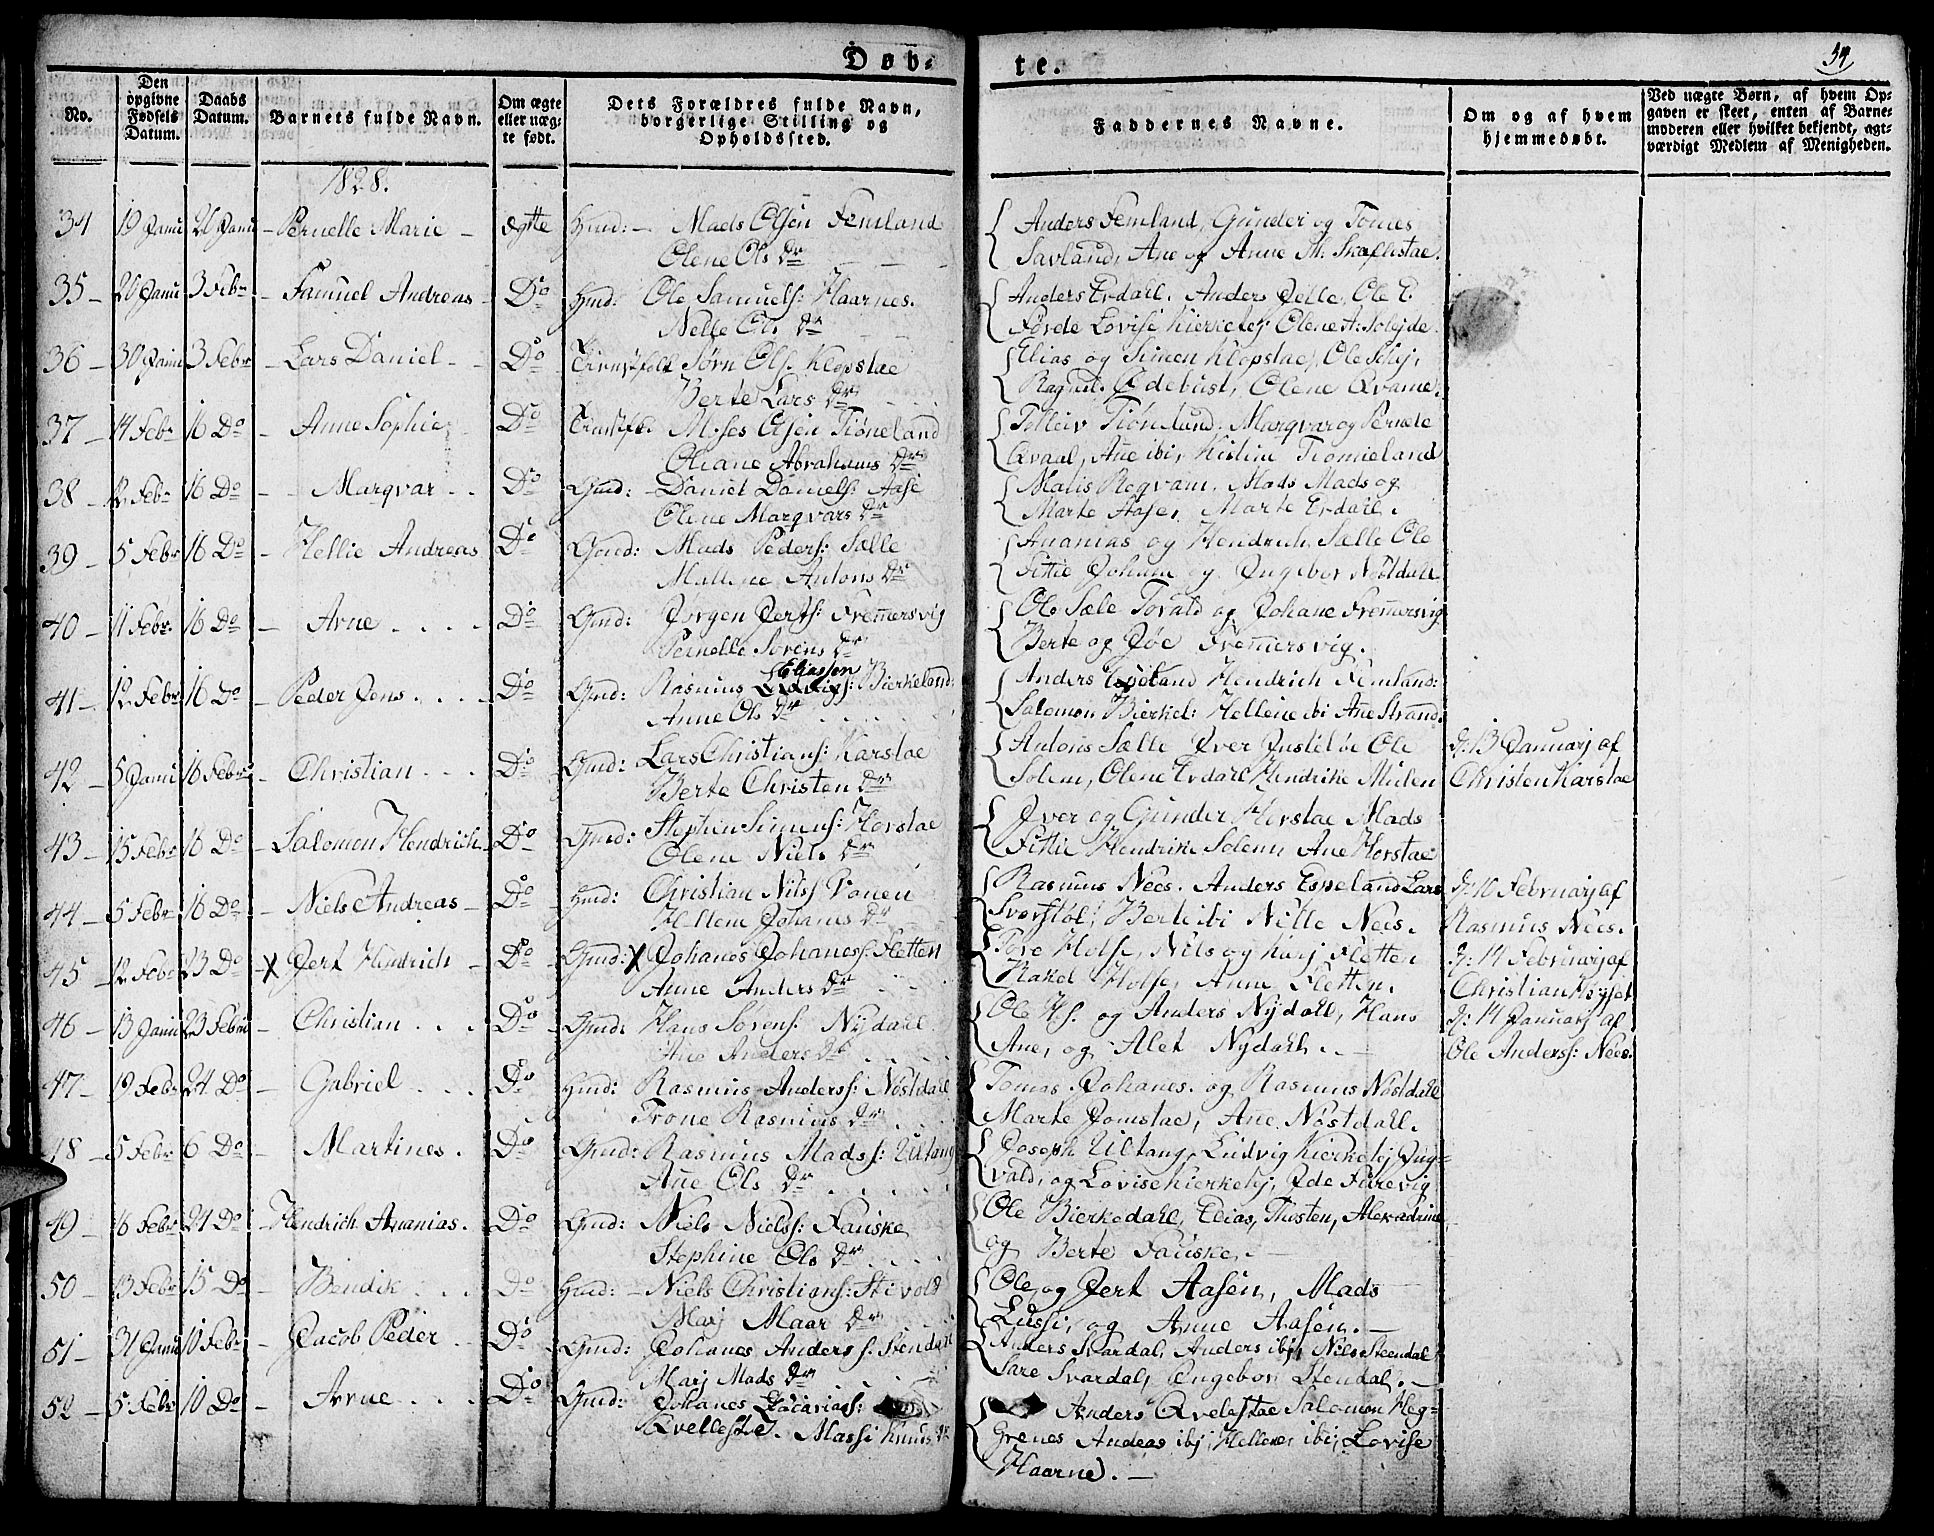 Døb-
te.
34
No.
Den opgivne Fødsels Datum.
Daabs Datum.
Barnets fulde Navn.
Om ægte eller uægte født.
Dets Forældres fulde Navn, borgerlige Stilling og Opholdssted.
Faddernes Navne.
Om og af hvem hjemmedøbt.
Ved uægte Børn, af hvem Opgaven er skeet, enten af Barnemoderen eller hvilket bekjendt, agtværdigt Medlem af Menigheden.
1828.
34 19 Janu 20 Janu - Pernelle Marie - ægte Gmd: - Mads Olsen Femland
Olene Ols Dr
Anders Femland, Gunder og Tomes
Savland, Ane og Anne
35 - 20 Janu 3 Febr - Samuel Andreas - Do Gmd: Ole Samuels: Haarnes.
Nelle Ols Dr
Anders Erdahl. Anders Ole E.
Førde Lovise Kierkeløj Olene A:
36 - 30 Janu 3 Febr - Lars Daniel - Do Søren Ols. Klopstae
Berte Lars Dr
Elias og Simen Klopstae, Ole
Ragnil. Ødebust, Olene Qvame.
37 - 14 Febr 16 Do - Anne Sophie Do Moses Olsen Tiøneland
Oliane Abrahams Dr
Tolleiv Tiøneland. Marqvar og Pernele
Qvaal, Ane ibi, Kistine
38 - 12 Febr 16 Do - Marqvar Do Gmd: - Daniel Daniels: Aase
Olene Marqvars Dr
Malis Mads Mads og
Marte Aase, Marte Erdahl.
39 - 5 Febr 16 Do - Hellie Andreas Do Gmd: Mads Peders: Sælle
Mallene Antonis Dr
Ananias og Hendrich Sælle Ole
Fittie Johane og Ingebor Nøstdahl
40 - 11 Febr. 16 Do - Arne Do Gmd: Jørgen Jerts: Fremersvig
Pernelle Sørens Dr
Ole Sæle Torald og Johane Fremersvig
Berte og Fremersvig.
41 - 12 Febr 16 Do - Peder Jens Do Gmd: Rasmus Eliassen Bierkeland:
Anne Ols Dr
Anders Espeland Hendrich Femland:
Salomon Bierkel: Hellene ibi Ane Strand.
42 - 5 Janu 16 Febr - Christian Do Gmd: Lars Christians: Karstae
Berte Christen Dr
Antonis Sælle Iver Ole
Solem, Olene Erdahl Hendrike Mulen
d: 13 Januarj af
Christen Karstae
43 - 15 Febr 16 Do - Salomon Hendrich Do Gmd: Stephen Simens: Horstae
Olene Niels Dr
Iver og Gunder Horstae Mads
Fittie Hendrike Solem Ane Horstae
44 - 5 Febr 16 Do - Niels Andreas - Do Gmd: Christian Nils: Vonen
Hellene Johanes Dr
Rasmus Nees. Anders Espeland Lars
Berte ibi Nille Nees.
d: 10 Februarj af
Rasmus Nees.
45 - 12 Febr 23 Do - X Jert Hendrich - Do Gmd: X Johanes Johaness: Fletten
Anne Anders Dr
Tore Holse, Nils og Fletten
Rakel Holse, Anne Fletten.
d: 14 Februarj af
Christian
46 - 13 Janu 23 Febru - Christian Do Gmd: Hans Sørens: Nydahl
Ane Anders Dr
Ole Hs. og Anders Nydahl, Hans
Ane, og Alet Nydahl. -
d: 14 Januarj af
Ole Anderss: Nees.
47 - 19 Febr 24 Do - Gabriel Do Gmd: Rasmus Anderss: Nøstdahl
Trone Rasmus Dr
Tomas Johanes. og Rasmus Nøstdahl
Marte Jomstae, Ane Nøstdahl.
48 - 5 Febr 6 Do - Martines. Do Gmd: Rasmus Madss: Ultang
Ane Ols Dr
Joseph Ultang, Ludvig Kierkeløj Ing-
vald, og Lovise Kierkeløj, Furevig
49 - 16 Febr 24 Do - Hendrich Ananias. Do Gmd: Niels Nielss: Fauske
Stephine Ols Dr
Ole Bierkedahl, Elias, Alexandrine
og Berte Fauske. -
50 - 13 Febr 15 Do - Bendik Do Gmd: - Niels Christians: Stivold
Marj Maar Dr
Ole, og Jert Aasen, Mads
Lussi, og Anne Aasen. -
51 - 31 Janu 10 Febr - Jacob Peder Do Gmd: Johanes Anders s: Stendahl
Marj Mads Dr
Anders Svardal, Anders ibj, Nils Steendal
Sare Svardal, Engebor Stendal. -
52 - 5 Febr 10 Do - Arne Do Gmd: Johanes Zacarias:
Qvellestæ. Massi Knuds Dr
Anders Qvelestae Salomon Heg-
Grenes Andeas ibj, Hellene ibj, Lovise
Haarne. -